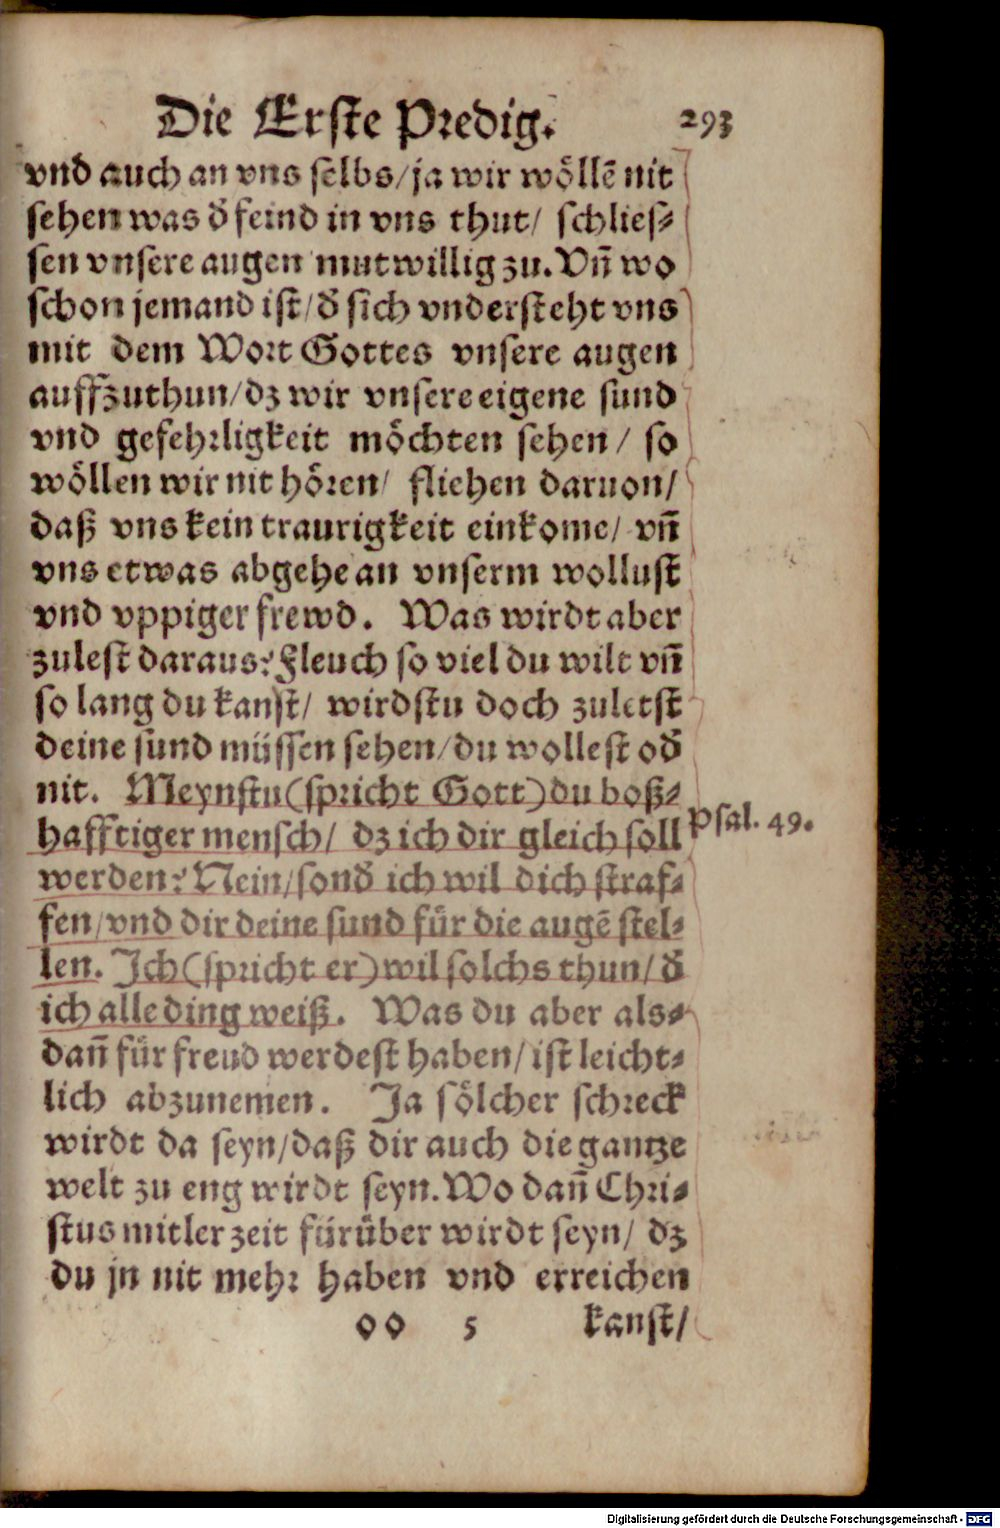 Die Erste Predig. 293
vnd auch an vns selbs/ja wir wöllē nit
sehen was d̕ feind in vns thut/ schlies⸗
sen vnsere augen mutwillig zu. Vn̄ wo
schon jemand ist/d̕ sich vndersteht vns
mit dem Wort Gottes vnsere augen
auffzuthun/dz wir vnsere eigene sund
vnd gefehrligkeit möchten sehen/ so
wöllen wir nit hören/ fliehen daruon/
daß vns kein traurigkeit einkome/ vn̄
vns etwas abgehe an vnserm wollust
vnd vppiger frewd. Was wirdt aber
zulest daraus? Fleuch so viel du wilt vn̄
so lang du kanst/ wirdstu doch zuletst
deine sund müssen sehen/du wollest od̕
nit. Meynstu (spricht Gott) du boß⸗
hafftiger mensch/ dz ich dir gleich soll
Psal. 49.
werden? Nein/sond̕ ich wil dich straf⸗
fen/vnd dir deine sund für die augē stel⸗
len. Ich (spricht er) wil solchs thun/d̕
ich alle ding weiß. Was du aber als⸗
dan̄ für freud werdest haben/ist leicht⸗
lich abzunemen. Ja sölcher schreck
wirdt da seyn/daß dir auch die gantze
welt zu eng wirdt seyn. Wo dan̄ Chri⸗
stus mitler zeit fürüber wirdt seyn/ dz
du jn nit mehr haben vnd erreichen
oo 5 kanst/
Digitalisierung gefördert durch die Deutsche Forschungsgemeinschaft - DFG